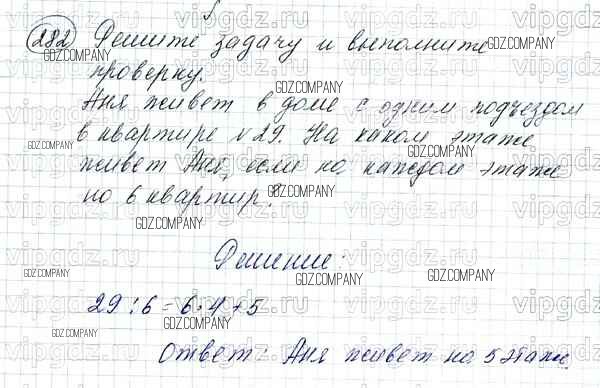 282 Решите задачу и выполните
проверку.
Аня живет в доме с одним подъездом
в квартире №29. На каком этаже
живет Аня, если на каждом этаже
по 6 квартир?
Решение:
29 : 6 = 6·4+5
Ответ: Аня живет на 5 этаже.
vipgdz.ru
GDZ.COMPANY